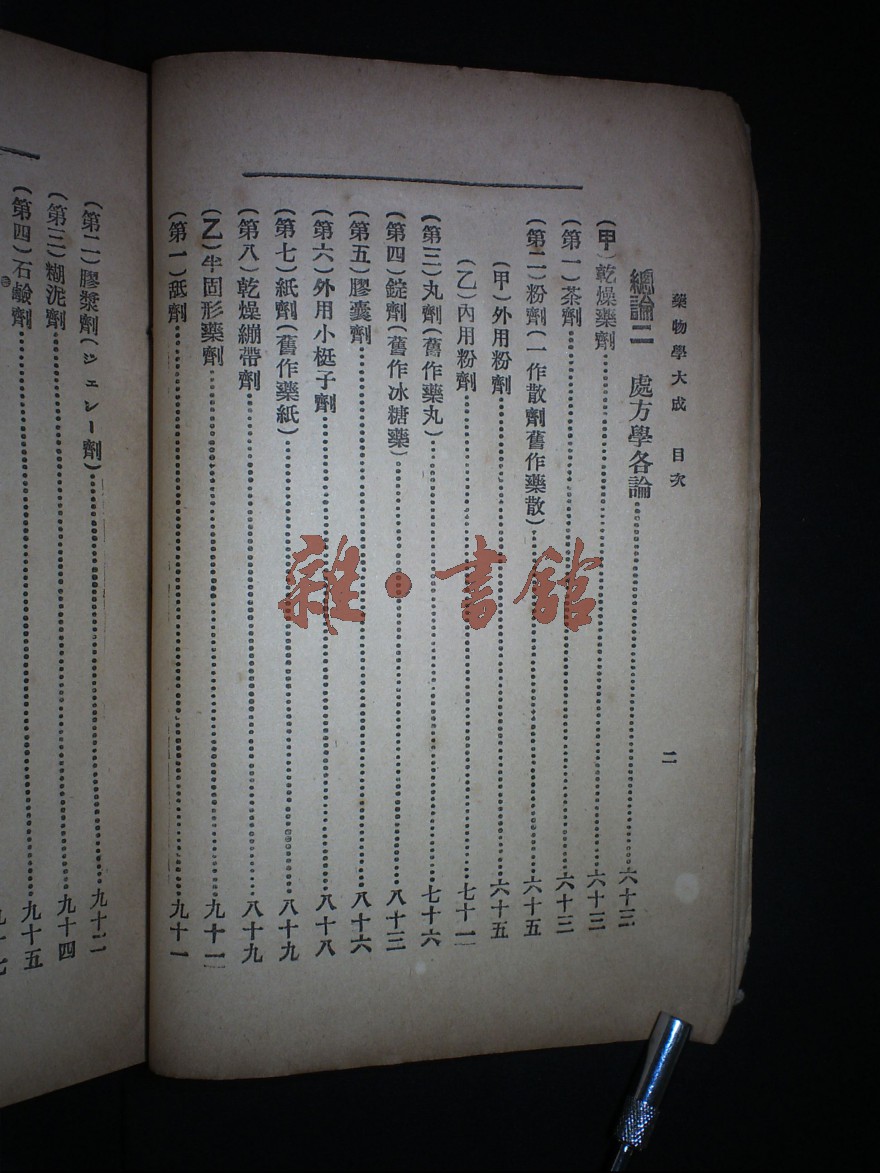 藥物學大成 目次 二
總論二 處方學各論……六十三
(甲)乾燥藥劑……六十三
(第一)茶劑……六十三
(第二)粉劑(一作散劑舊作藥散)……六十五
(甲)外用粉劑……六十五
(乙)內用粉劑……七十二
(第三)丸劑(舊作藥丸)……七十六
(第四)錠劑(舊作冰糖藥)……八十三
(第五)膠囊劑……八十六
(第六)外用小梃子劑……八十八
(第七)紙劑(舊作藥紙)……八十九
(第八)乾燥繃帶劑……八十九
(乙)半固形藥劑……九十一
(第一)舐劑……九十一
(第二)膠漿劑(ジェレー劑)……九十二
(第三)糊泥劑……九十四
(第四)石鹼劑……九十五
雜·書館